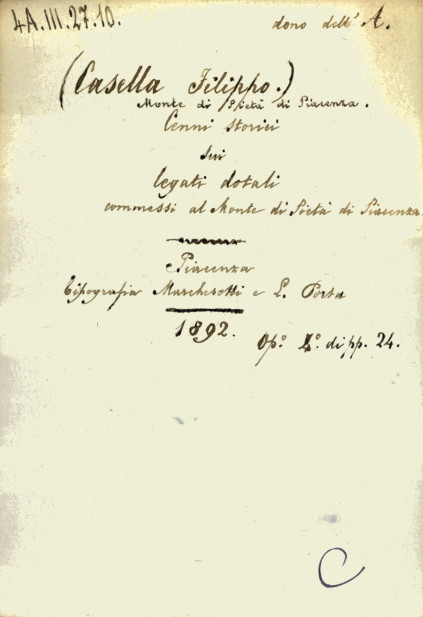 4A.III.27.10.
dono dell' A.
(Casella Filippo.)
Monte di Pietà di Piacenza.
Cenni storici
sui
legati dotali
commessi al Monte di Pietà di Piacenza
Piacenza
Tipografia Marchesotti e L. Porta
1892.
Op.° 4.° di pp. 24.
C